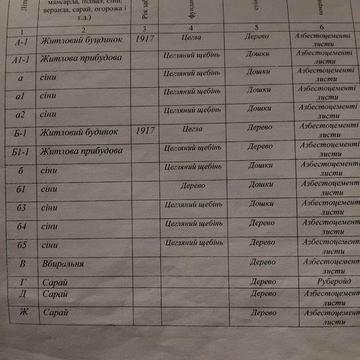 мансарда, підвал, сіни,
веранда, сарай, огорожа і
т.д.)
Рік
1 2 3 4 5 6
А-1 Житловий будинок 1917 Цегла Дерево Азбестоцементні листи
А1-1 Житлова прибудова Цегляний щебінь Дошки Азбестоцементні листи
а сіни Цегляний щебінь Дошки Азбестоцементні листи
а1 сіни Цегляний щебінь Дошки Азбестоцементні листи
а2 сіни Цегляний щебінь Дошки Азбестоцементні листи
Б-1 Житловий будинок 1917 Цегла Дерево Азбестоцементні листи
Б1-1 Житлова прибудова Цегляний щебінь Дерево Азбестоцементні листи
б сіни Цегляний щебінь Дошки Азбестоцементні листи
б1 сіни Дерево Дошки Азбестоцементні листи
б3 сіни Цегляний щебінь Дошки Азбестоцементні листи
б4 сіни Цегляний щебінь Дерево Азбестоцементні листи
б5 сіни Цегляний щебінь Дерево Азбестоцементні листи
В Вбиральня Дерево Азбестоцементні листи
Г Сарай Дерево Рубероїд
Д Сарай Дерево Азбестоцементні листи
Ж Сарай Дерево Азбестоцементні листи